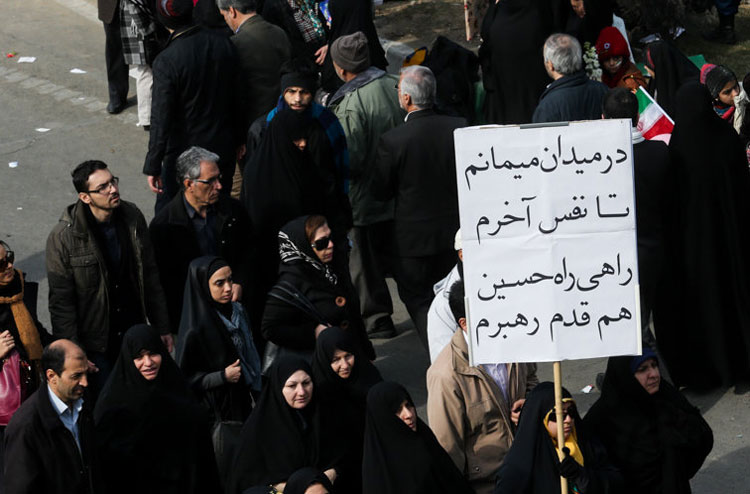 در میدان میمانم
تا نفس آخرم
راهی راه حسین
هم قدم رهبرم